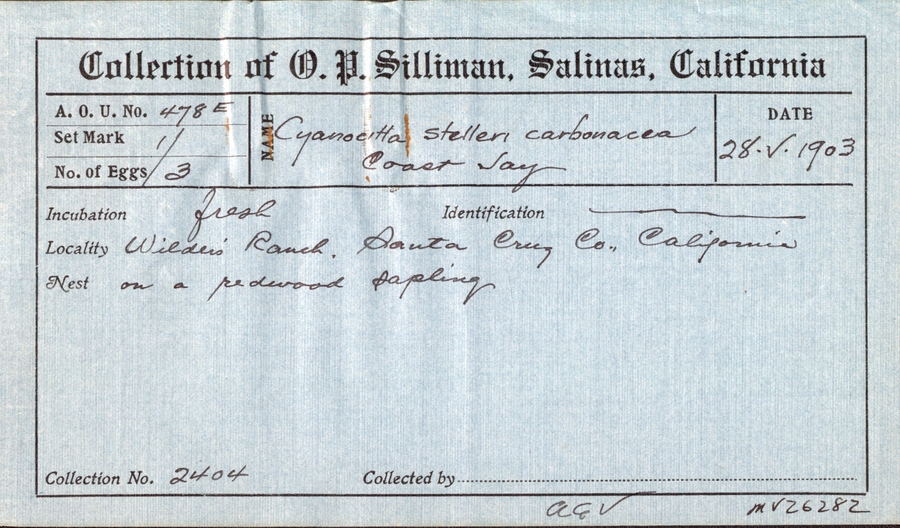 Collection of O. P. Silliman, Salinas, California
A. O. U. No. 478 E
Set Mark 1/
No. of Eggs/3
NAME Cyanocitta stelleri carbonacea
Coast Jay
DATE
28·V·1903
Incubation fresh Identification
Locality Wilder's Ranch. Santa Cruz Co., California
Nest on a redwood sapling
Collection No. 2404 Collected by
MVZ6282